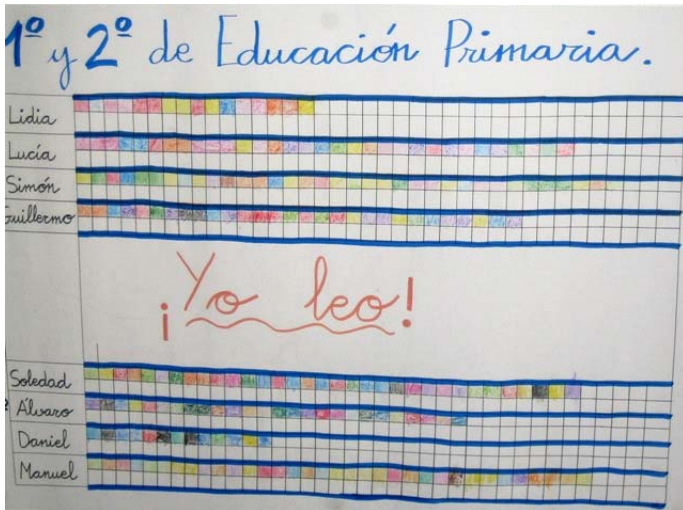 1º y 2º de Educación Primaria.
Lidia
Lucía
Simón
Guillermo
¡Yo leo!
Soledad
Álvaro
Daniel
Manuel